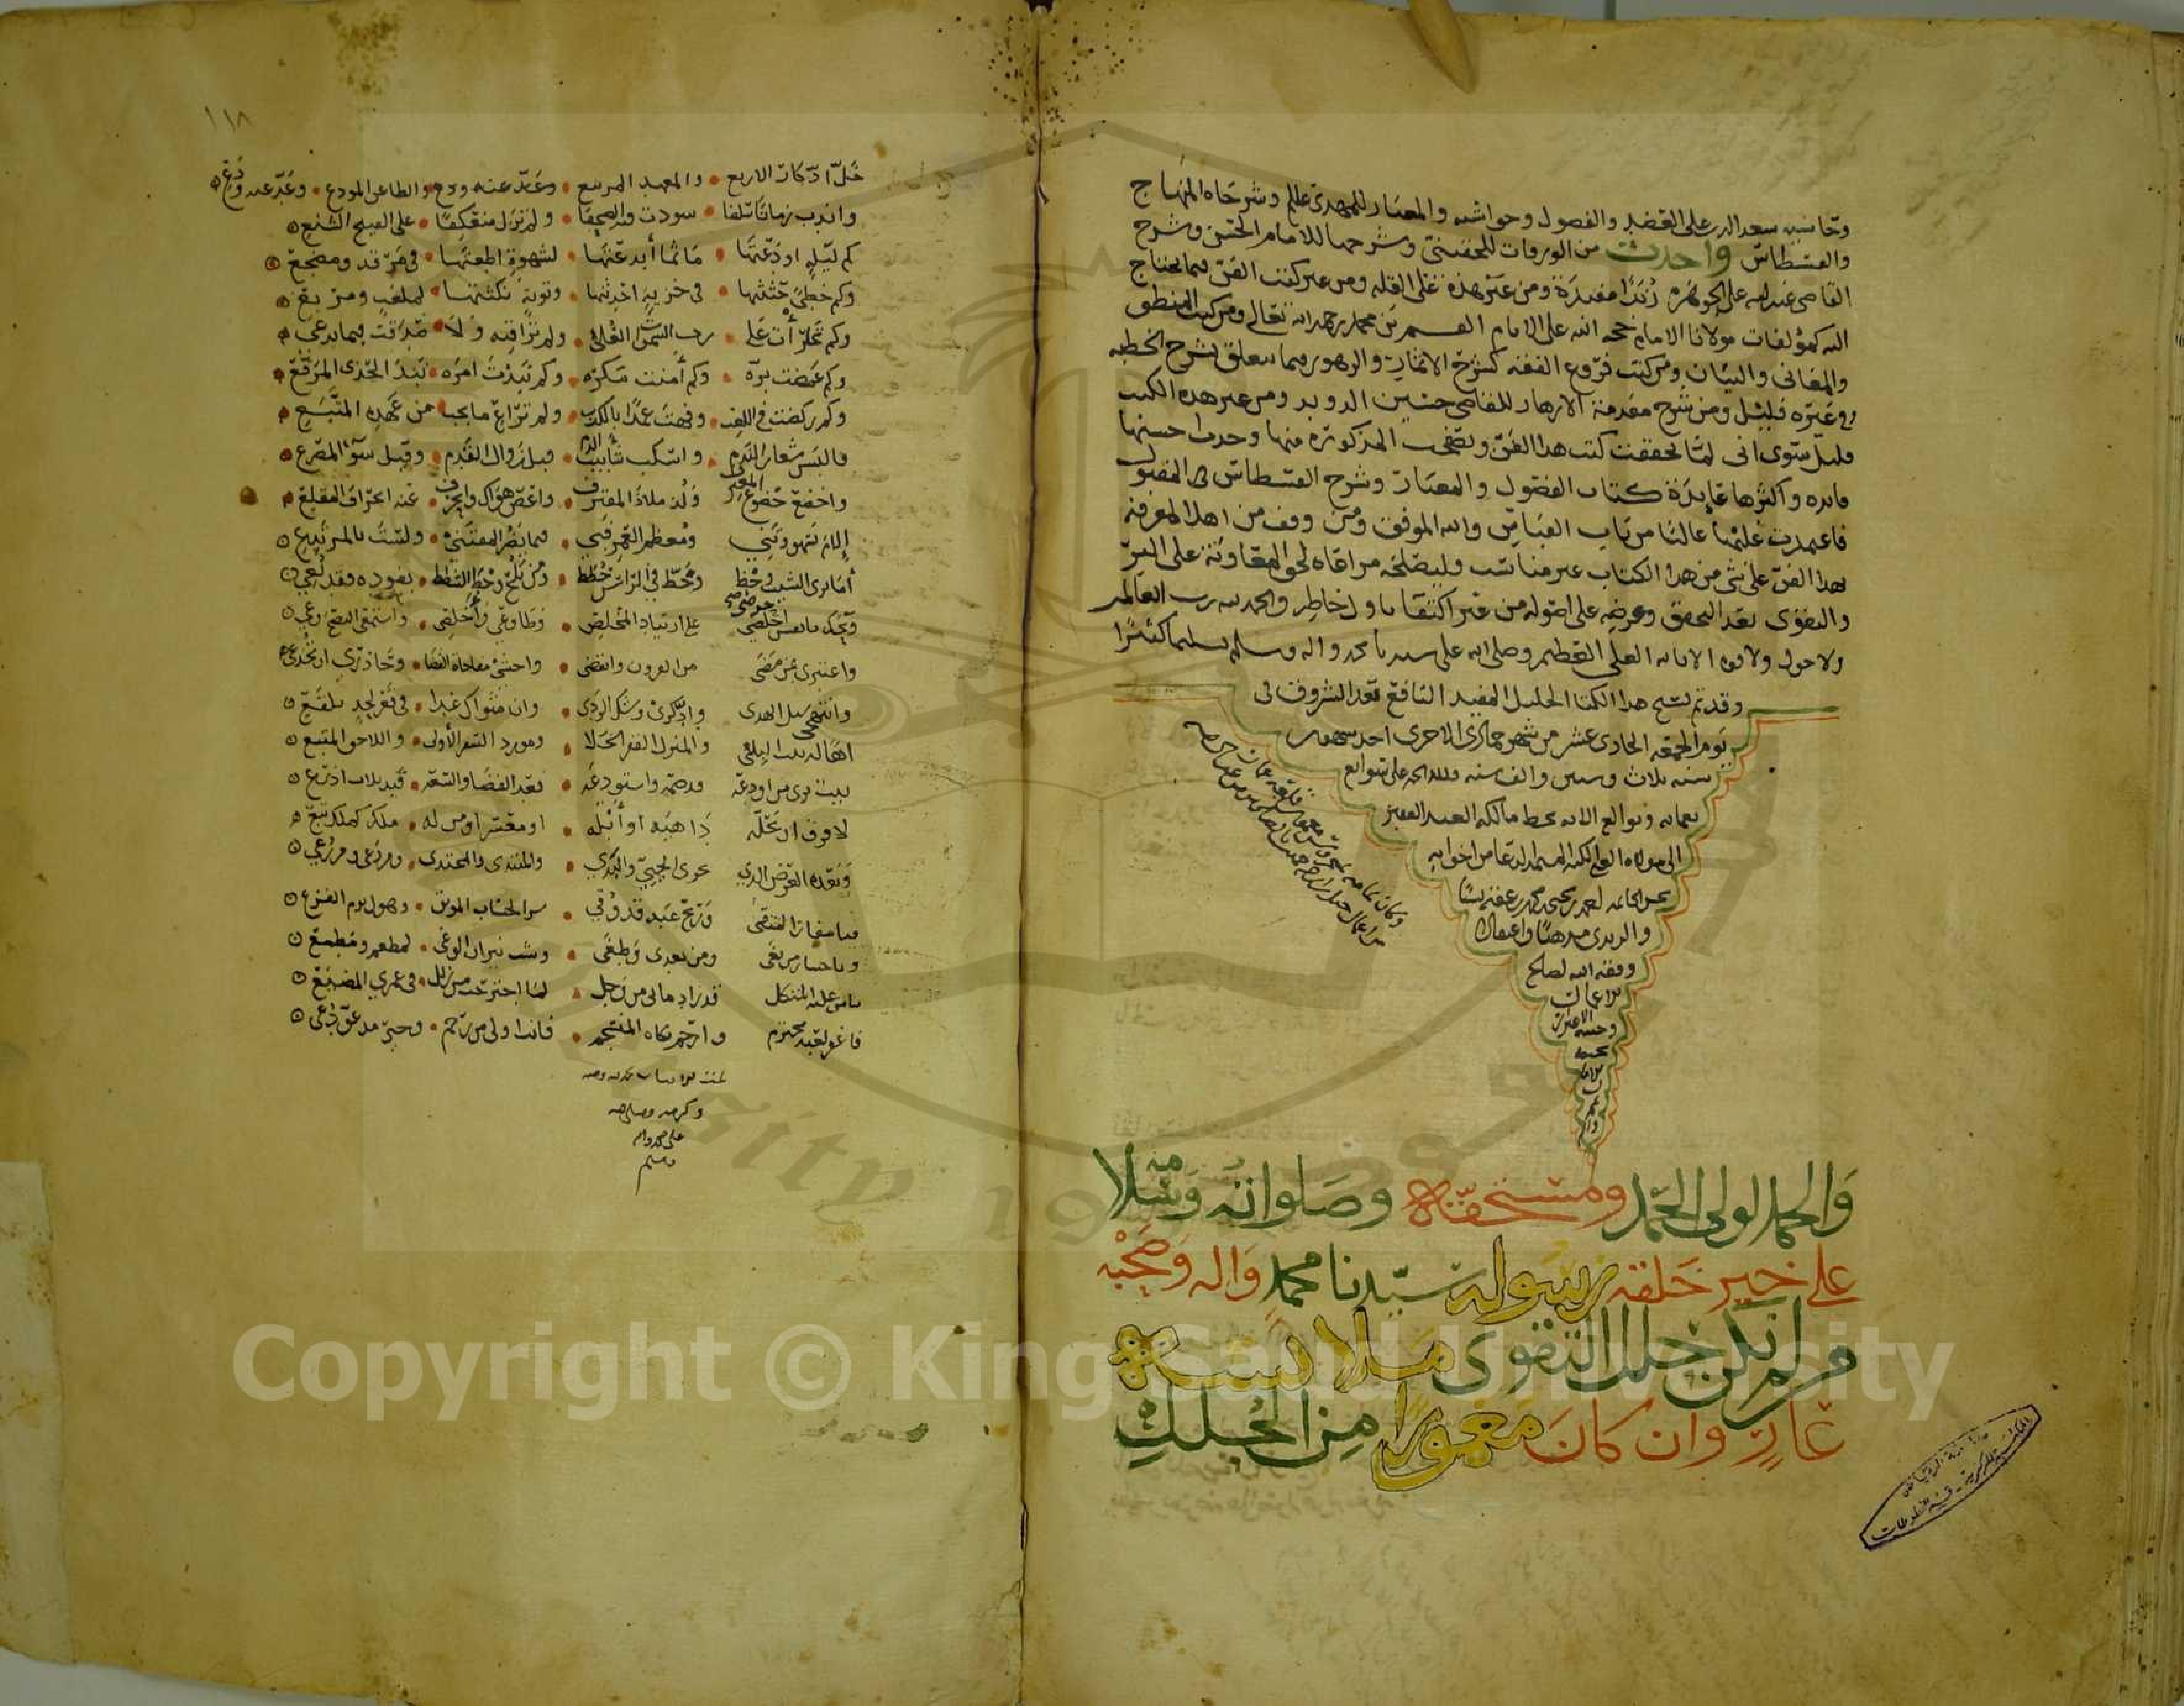 وحاشيه سعد الدين على العضد والفصول وحواشيه والمعيار للمهدي عللم وشرحاه المنهاج
والقسطاس واخذت من الورقات للجويني وشرحها للامام الحسن وشرح
القاضي عبدالله على الجوهره زبدا مفيدة ومن غير هذه على القله ومن غير كتب الفن فيما يحتاج
اليه كمؤلفات مولانا الامام حجه الله على الانام القسم بن محمد رحمه الله تعالى ومن كتب المنطق
والمعاني والبيان ومن كتب فروع الفقه كشرح الاثمار والزهور فيما يتعلق بشرح الخطبه
وفي غيره قليل ومن شرح مقدمة الازهار للقاضي حسين الدويد ومن غير هذه الكتب
قليل سوى اني لما تحققت كتب هذا الفن وتصفحت المذكورة منها وجدت احسنها
فائده واكثرها عايدة كتاب الفصول والمعيار وشرح القسطاس في المنقول
فاعتمدت عليها غالبا من باب القياس والله الموفق ومن وقف من اهل المعرفة
لهذا الفن على شي من هذا الكتاب غير مناسب فليصلحه مراعاه لحق المعاونة على البر
والتقوى بعد التحقق وعرضه على اصوله من غير اكتفا باول خاطر والحمد لله رب العالمين
ولا حول ولا قوه الا بالله العلي العظيم وصلى الله على سيدنا محمد واله وسلم تسليما كثيرا
وقد تم نسخ هذا الكتاب الجليل المفيد النافع بعد الشروق في
يوم الجمعه الحادي عشر من شهر جمادى الاخرى احد شهور
سنه ثلاث وستين والف سنه ولله الحمد على سوابغ
نعمائه وتوالع الائه بخط مالكه العبد الفقير
وفقه الله لصالح
الاعمال
والحمد لولي الحمد ومستحقه وصلواته وسلامه
على خير خلقه رسوله سيدنا محمد واله وصحبه
من لم تكن حلل التقوى ملابسه
عار وان كان مغمورا من الحلل
١١٨
خل ادكار الاربع • والمعهد المرتبع • وعد عنه ودع • والظاعن المودع • وعد عنه ودع
واندب زمانا سلفا • سودت فيه الصحفا • ولم تزل معتكفا • على القبيح الشنع
كم ليله اودعتها • ماثما أبدعتها • لشهوة اطعتها • في مرقد ومضجع
وكم خطى حثثتها • في خزيه احدثتها • وتوبة نكثتها • لملعب ومرتع
وكم تجرأت على • رب السموات العلى • ولم تراقبه ولا • صدقت فيما تدعي
وكم غمصت بره • وكم أمنت مكره • وكم نبذت امره • نبذ الحذى المرقع
وكم ركضت في اللعب • وفهت عمدا بالكذب • ولم تراع ما يجب • من عهده المتبع
فالبس شعار الندم • واسكب شأبيب الدم • قبل زوال القدم • وقبل سوء المصرع
واخضع خضوع المعترف • ولذ ملاذ المقترف • واعص هواك وانحرف • عنه انحراف المقلع
إلام تسهو وتني • ومعظم العمر فني • فيما يضر المقتني • ولست بالمرتدع
أما ترى الشيب وخط • وخط في الراس خطط • ومن يلح وخط الشمط • بفوده فقد نعي
ويحك يا نفس احرصي • على ارتياد المخلص • وطاوعي وأخلصي • واستمعي النصح وعي
واعتبري بمن مضى • من القرون وانقضى • واخشي مفاجاة القضا • وحاذري ان تخدعي
وانتهجي سبل الهدى • وادكري وشك الردى • وان مثواك غدا • في قعر لحد بلقع
اها له بيت البلى • والمنزل القفر الخلا • ومورد السفر الأولى • واللاحق المتبع
بيت يرى من اودعه • قد ضمه واستودعه • بعد الفضا والسعه • قيد ثلاث اذرع
لا فرق ان يحله • داهيه او أبله • او معسر او من له • ملك كملك تبع
وبعده العرض الذي • يحوى الحيي والبذي • والمبتدى والمحتذى • ومن رعى ومن رعي
فيا مفاز المتقي • وربح عبد قد وقي • سوء الحساب الموبق • وهول يوم الفزع
ويا خسار من بغى • ومن تعدى وطغى • وشب نيران الوغى • لمطعم ومطمع
يا من عليه المتكل • قد زاد ما بي من وجل • لما اجترحت من زلل • في عمري المضيع
فاغفر لعبد مجترم • وارحم بكاه المنسجم • فانت اولى من رحم • وخير مدعو دعي
تمت هذه الابيات بحمد الله ومنه
وكرمه وصلى الله
على محمد واله
وسلم
Copyright © King Saud University